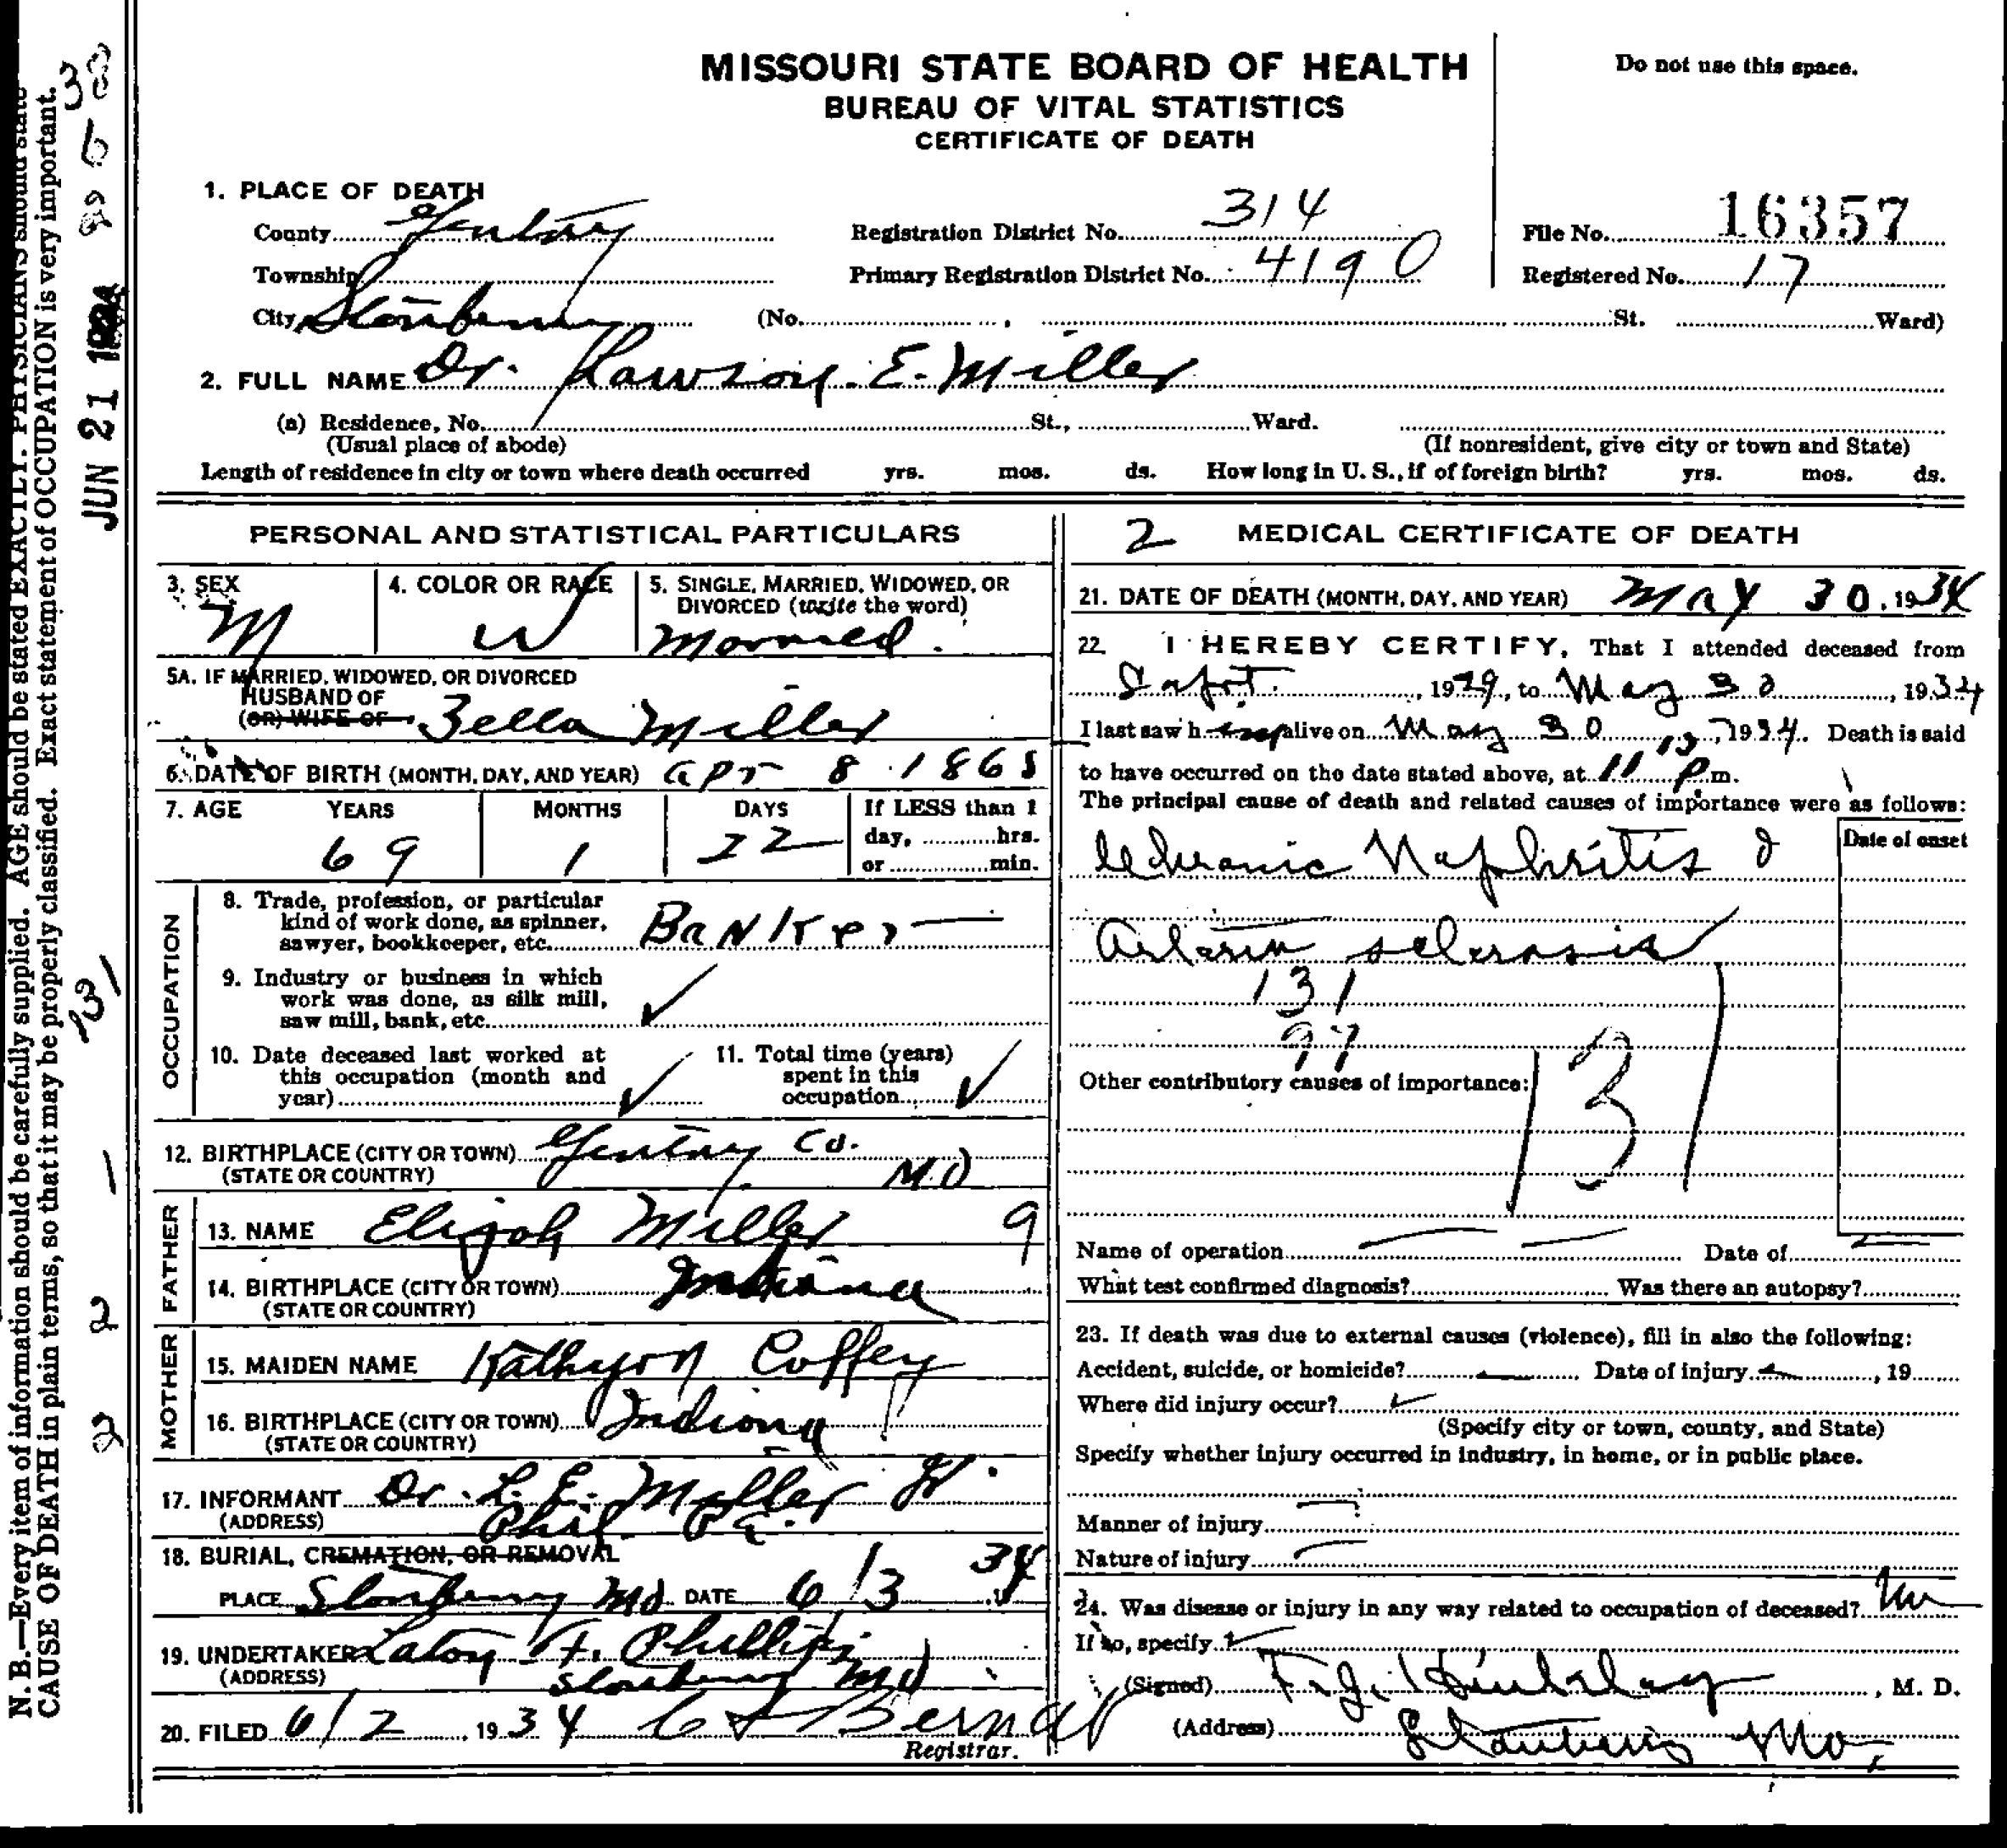 MISSOURI STATE BOARD OF HEALTH
BUREAU OF VITAL STATISTICS
CERTIFICATE OF DEATH
Do not use this space.
1. PLACE OF DEATH
County Gentry Registration District No. 314 File No. 16357
Township Primary Registration District No. 4190 Registered No. 17
City Stanberry (No. , St. Ward)
2. FULL NAME Dr. Lawson. E. Miller
(a) Residence, No. St., Ward.
(Usual place of abode) (If nonresident, give city or town and State)
Length of residence in city or town where death occurred yrs. mos. ds. How long in U. S., if of foreign birth? yrs. mos. ds.
PERSONAL AND STATISTICAL PARTICULARS
3. SEX M
4. COLOR OR RACE W
5. SINGLE, MARRIED, WIDOWED, OR
DIVORCED (write the word)
Married.
5A. IF MARRIED, WIDOWED, OR DIVORCED
HUSBAND OF
(OR) WIFE OF Zella Miller
6. DATE OF BIRTH (MONTH, DAY, AND YEAR) Apr 8. 1865
7. AGE YEARS MONTHS DAYS If LESS than 1
day, hrs.
or min.
69 1 22
OCCUPATION
8. Trade, profession, or particular
kind of work done, as spinner,
sawyer, bookkeeper, etc. Banker
9. Industry or business in which
work was done, as silk mill,
saw mill, bank, etc. ✓
10. Date deceased last worked at
this occupation (month and
year) ✓
11. Total time (years)
spent in this
occupation ✓
12. BIRTHPLACE (CITY OR TOWN) Gentry Co.
(STATE OR COUNTRY) MO
FATHER
13. NAME Elijah Miller 9
14. BIRTHPLACE (CITY OR TOWN) Indiana
(STATE OR COUNTRY)
MOTHER
15. MAIDEN NAME Kathyrn Coffey
16. BIRTHPLACE (CITY OR TOWN) Indiana
(STATE OR COUNTRY)
17. INFORMANT Dr. L. E. Miller Jr.
(ADDRESS) Phil. Pa.
18. BURIAL, CREMATION, OR REMOVAL
PLACE Stanberry Mo DATE 6/3 34
19. UNDERTAKER F. Phillips
(ADDRESS) Stanberry Mo
20. FILED 6/2, 1934
Registrar.
2 MEDICAL CERTIFICATE OF DEATH
21. DATE OF DEATH (MONTH, DAY, AND YEAR) May 30, 1934
22. I HEREBY CERTIFY, That I attended deceased from
Sept., 1929, to May 30, 1934
I last saw h im alive on May 30, 1934. Death is said
to have occurred on the date stated above, at 11 P m.
The principal cause of death and related causes of importance were as follows:
Date of onset
Chronic Nephritis &
Arterio sclerosis
131
97
131
Other contributory causes of importance:
Name of operation Date of
What test confirmed diagnosis? Was there an autopsy?
23. If death was due to external causes (violence), fill in also the following:
Accident, suicide, or homicide? Date of injury , 19
Where did injury occur?
(Specify city or town, county, and State)
Specify whether injury occurred in industry, in home, or in public place.
Manner of injury
Nature of injury
24. Was disease or injury in any way related to occupation of deceased? No
If so, specify
(Signed) , M. D.
(Address) Stanberry Mo.
N. B.—Every item of information should be carefully supplied. AGE should be stated EXACTLY. PHYSICIANS should state
CAUSE OF DEATH in plain terms, so that it may be properly classified. Exact statement of OCCUPATION is very important.
JUN 21 1934
131
1
2
2